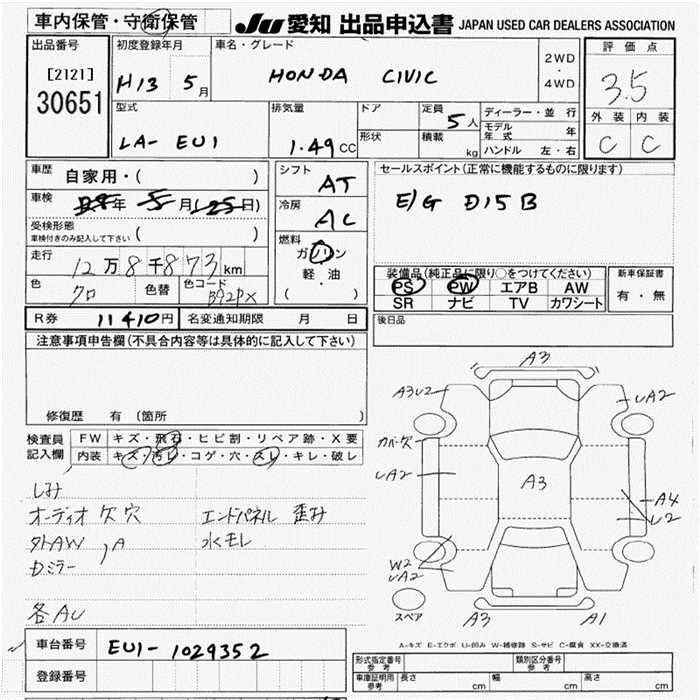 車内保管・守衛保管
JU 愛知 出品申込書 JAPAN USED CAR DEALERS ASSOCIATION
出品番号
[2121]
30651
初度登録年月
H13 5月
車名・グレード
HONDA CIVIC
2WD
・
4WD
評価点
3.5
外装 内装
C C
型式
LA- EU1
排気量
1.49CC
ドア
形状
定員
5人
積載
kg
ディーラー・並行
モデル年式 年
ハンドル 左・右
車歴
自家用・( )
車検
年 月( 日)
受検形態
車検付きのみ記入して下さい ( )
走行
12万8千873km
色
クロ
色替
色コード
B92PX
シフト
AT
冷房
AC
燃料
ガソリン
軽・油
( )
セールスポイント(正常に機能するものに限ります)
E/G D15B
装備品(純正品に限り○をつけてください)
PS PW エアB AW
SR ナビ TV カワシート
新車保証書
有・無
R券 11410円
名変通知期限 月 日
後日品
注意事項申告欄(不具合内容等は具体的に記入して下さい)
修復歴 有 (箇所 )
検査員記入欄
FW キズ・飛石・ヒビ割・リペア跡・X要
内装 キズ・汚レ・コゲ・穴・スレ・キレ・破レ
しみ
オーディオ欠穴
外AW , A
D.ミラー
各AU
エンドパネル 歪み
水モレ
A3
A3U2
UA2
カバー欠
UA2
A3
A4
U2
W2
UA2
スペア
A3
A1
A-キズ E-エクボ U-凹み W-補修跡 S-サビ C-腐食 XX-交換済
車台番号
EU1-1029352
登録番号
形式指定番号
参考
類別区分番号
参考
車庫証明用
参考
長さ cm
幅 cm
高さ cm